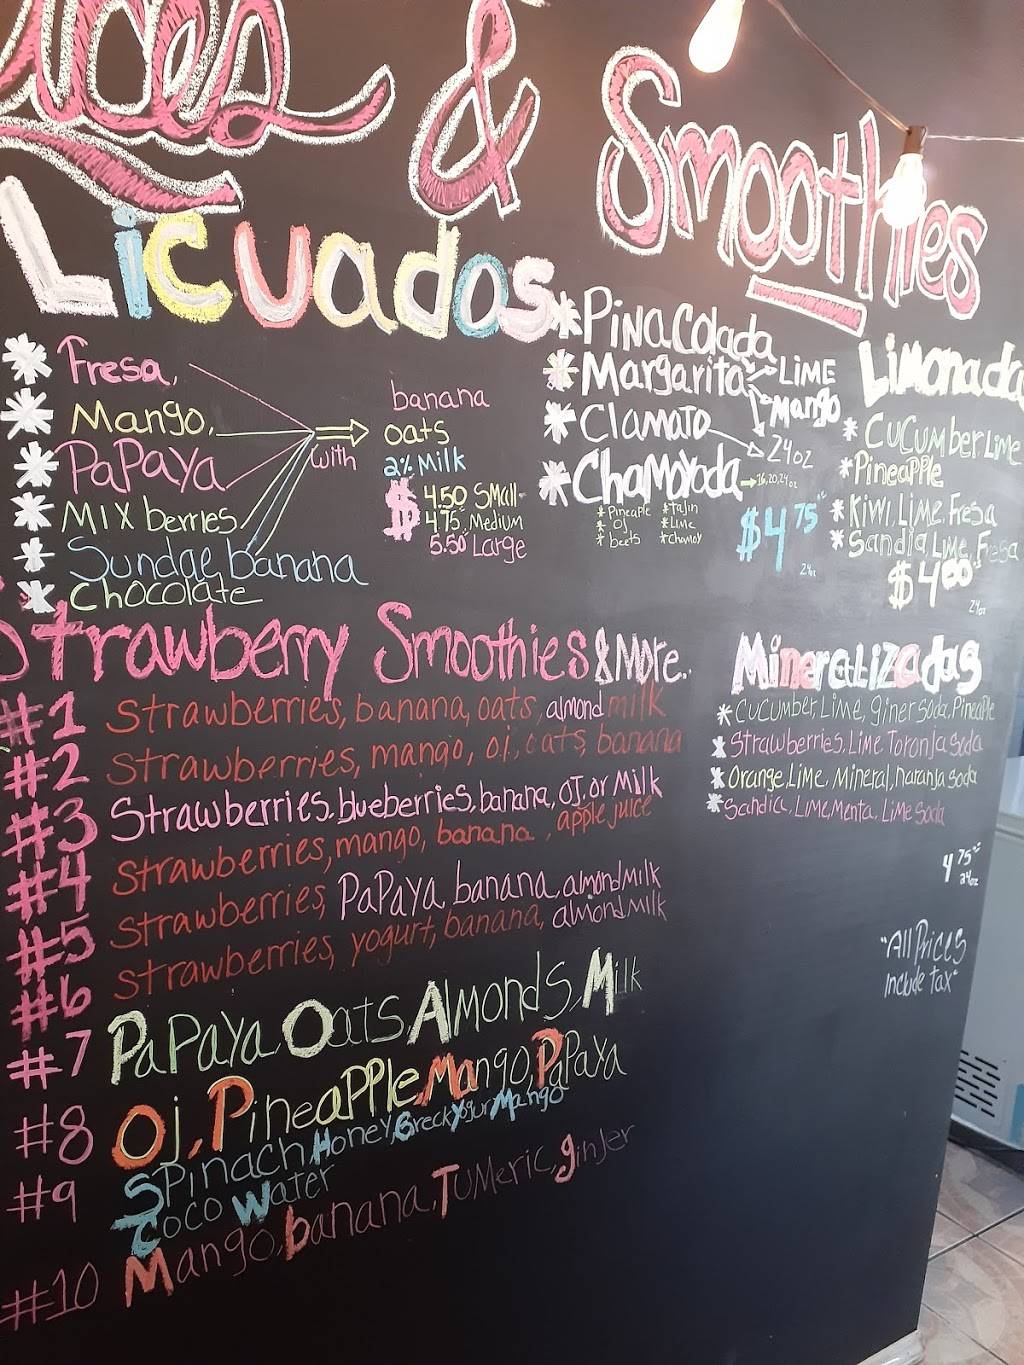 & Smoothies
Licuados
* Fresa,
* Mango,
* PaPaYa
* Mix berries
* Sundae banana
* Chocolate
with
banana
oats
2% Milk
$ 4.50 Small
4.75 Medium
5.50 Large
* Pina Colada
* Margarita
Lime
Mango
* Clamato
24oz
* Chamoyada
16,20,24oz
* Pineapple
* OJ
* beets
* tajin
* Lime
* Chamoy
$4.75
24oz
Limonada
* Cucumber Lime
* Pineapple
* Kiwi, Lime, Fresa
* Sandia, Lime, Fresa
$4.00
24oz
Strawberry Smoothies & More.
#1 Strawberries, banana, oats, almond milk
#2 Strawberries, mango, o.j, oats, banana
#3 Strawberries, blueberries, banana, OJ, or Milk
#4 Strawberries, mango, banana, apple juice
#5 Strawberries, PaPaya, banana, almond milk
#6 Strawberries, yogurt, banana, almond Milk
#7 PaPaya, Oats, Almonds, Milk
#8 Oj, Pineapple, Mango, PaPaya
#9 Spinach, Honey, Greck Yogur, Mango
Coco Water
#10 Mango, banana, Tumeric, ginjer
Mineralizadas
* Cucumber, Lime, giner soda, Pineaple
* Strawberries, Lime Toronja Soda
* Orange, Lime, Mineral, naranja soda
* Sandia, Lime, Menta, Lime Soda
4.75
24oz
"All Prices
include tax"